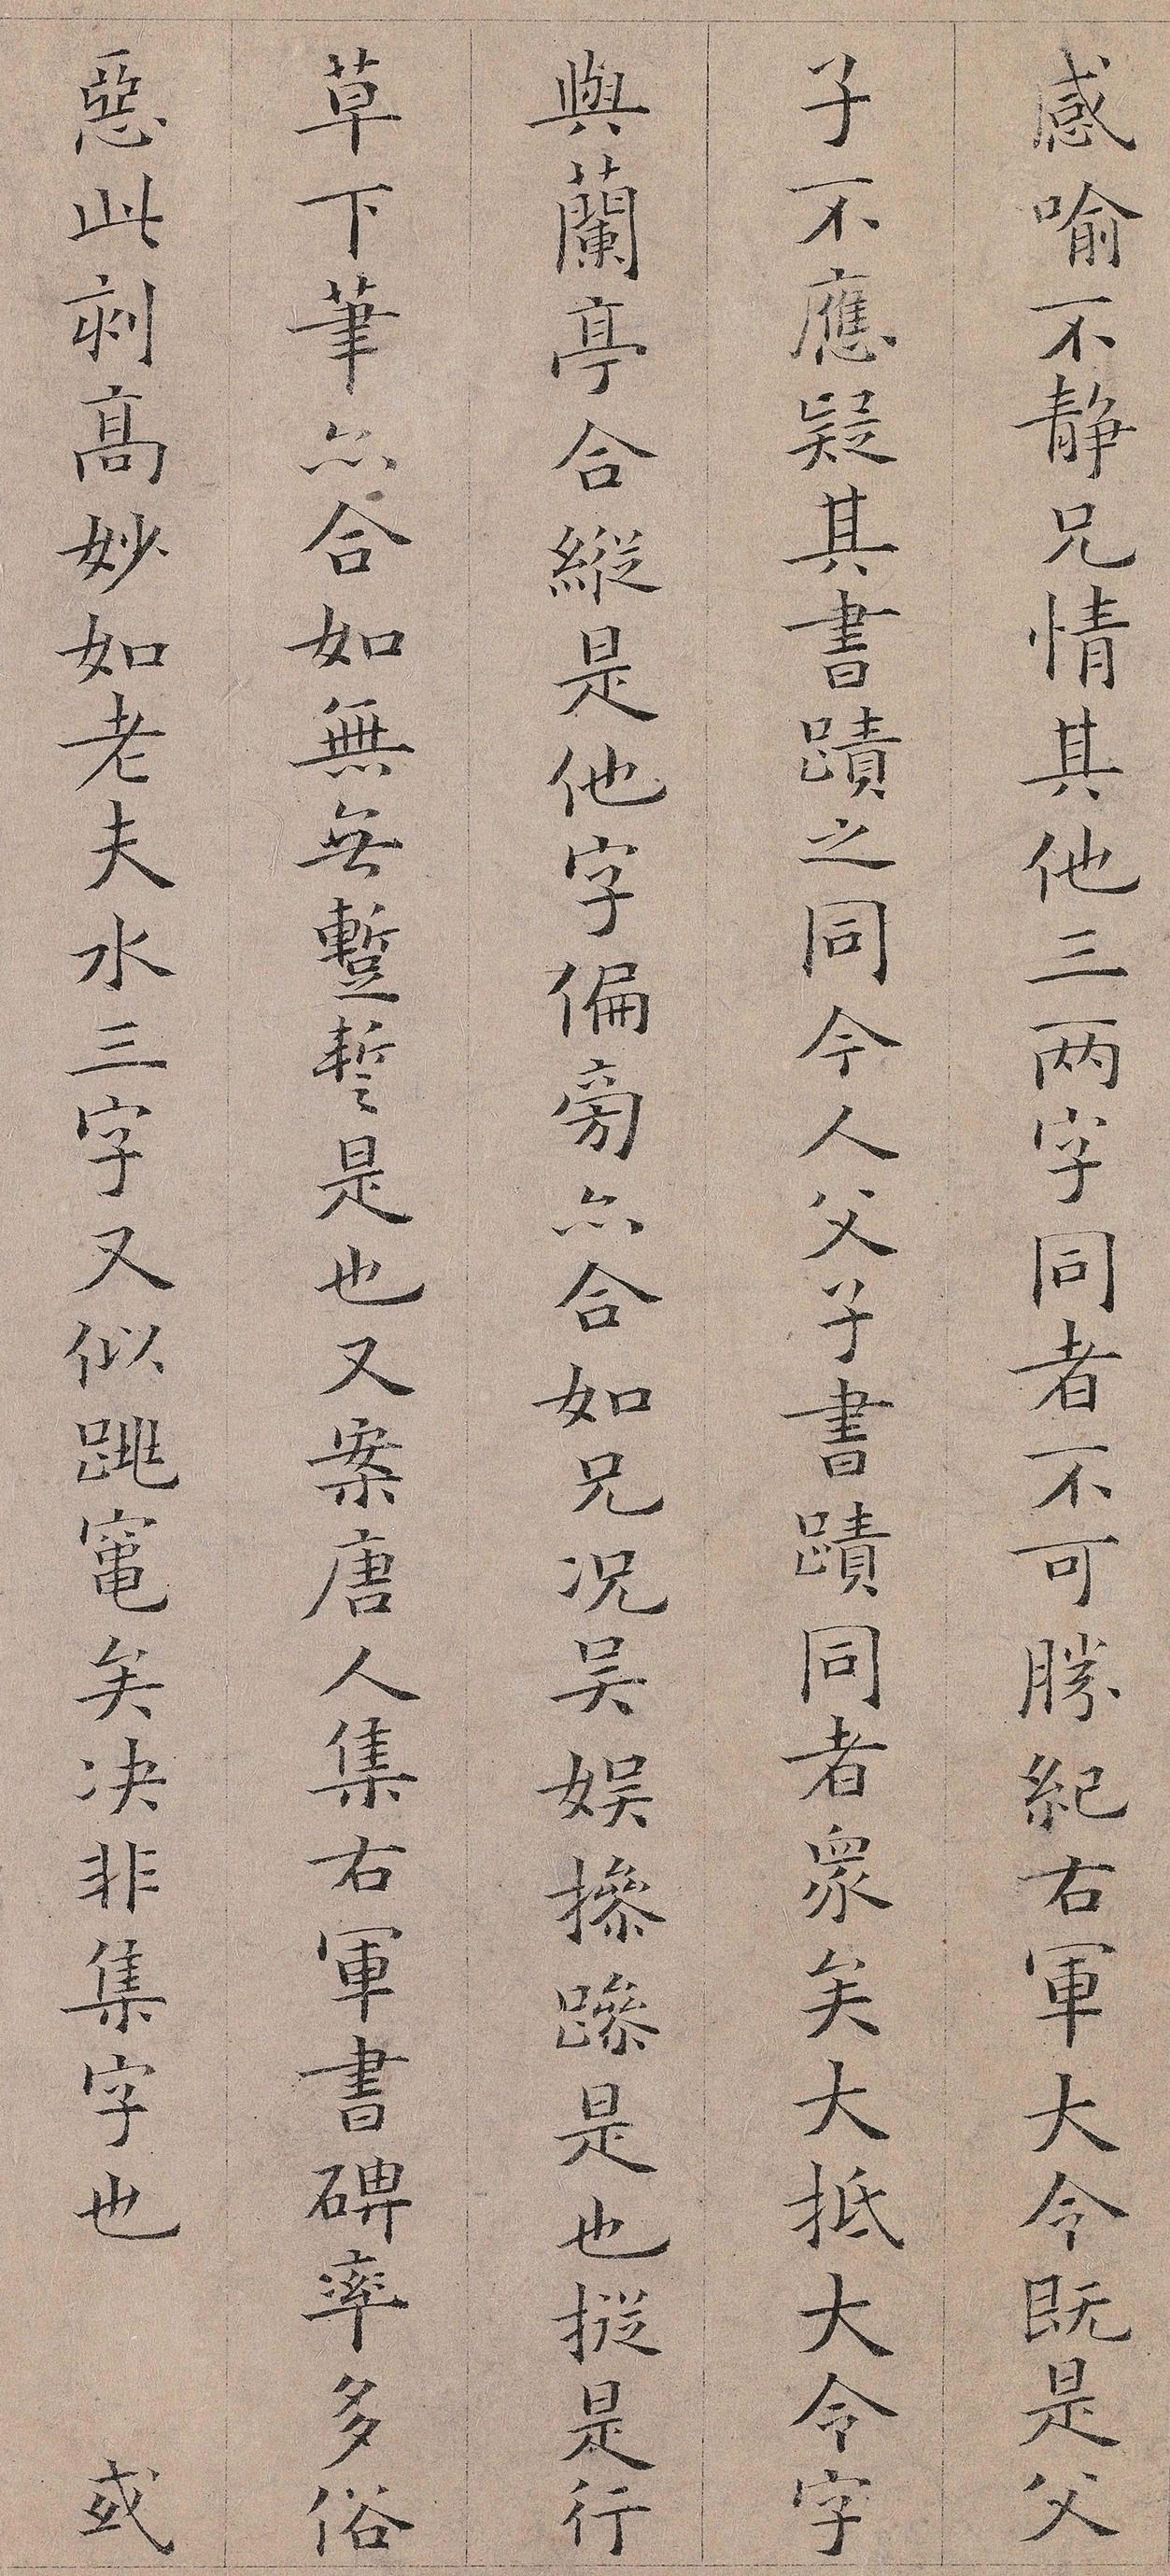 感喻不静兄情其他三两字同者不可勝紀右軍大令既是父
子不應疑其書蹟之同今人父子書蹟同者衆矣大抵大令字
與蘭亭合縱是他字偏旁亦合如兄况吴娱摻蹂是也摐是行
草下筆亦合如無㒇蹔誓是也又案唐人集右軍書碑率多俗
惡此刻高妙如老夫水三字又似跳竃矣决非集字也
或